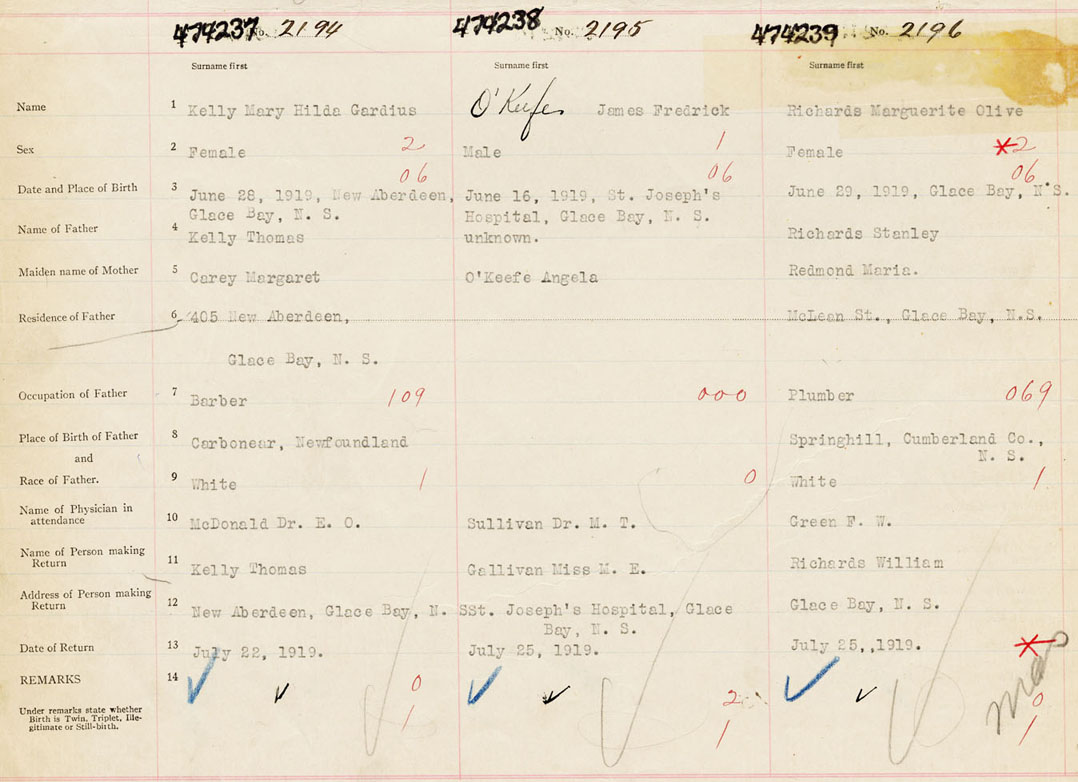 474237 No. 2194 474238 No. 2195 474239 No. 2196
Surname first Surname first Surname first
Name 1 Kelly Mary Hilda Gardius O'Keefe James Fredrick Richards Marguerite Olive
Sex 2 Female 2 Male 1 Female 2
06 06 06
Date and Place of Birth 3 June 28, 1919, New Aberdeen, June 16, 1919, St. Joseph's June 29, 1919, Glace Bay, N.S.
Glace Bay, N. S. Hospital, Glace Bay, N. S.
Name of Father 4 Kelly Thomas unknown. Richards Stanley
Maiden name of Mother 5 Carey Margaret O'Keefe Angela Redmond Maria.
Residence of Father 6 405 New Aberdeen, McLean St., Glace Bay, N.S.
Glace Bay, N. S.
Occupation of Father 7 Barber 109 000 Plumber 069
Place of Birth of Father 8 Carbonear, Newfoundland Springhill, Cumberland Co.,
and N. S.
Race of Father. 9 White 1 0 White 1
Name of Physician in
attendance 10 McDonald Dr. E. O. Sullivan Dr. M. T. Green F. W.
Name of Person making
Return 11 Kelly Thomas Gallivan Miss M. E. Richards William
Address of Person making
Return 12 New Aberdeen, Glace Bay, N. S St. Joseph's Hospital, Glace Glace Bay, N. S.
Bay, N. S.
Date of Return 13 July 22, 1919. July 25, 1919. July 25,,1919.
REMARKS 14 0 2 0
Under remarks state whether
Birth is Twin, Triplet, Ille-
gitimate or Still-birth. 1 1 1